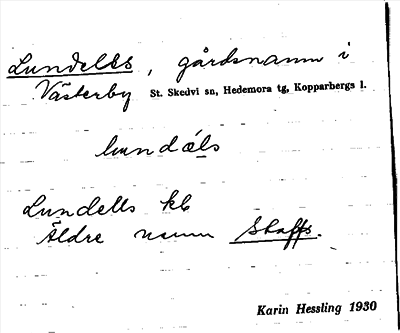 Lundells, gårdsnamn i
Västerby St. Skedvi sn, Hedemora tg, Kopparbergs l.
lundǽls
Lundells kb
Äldre namn Staffs.
Karin Hessling 1930